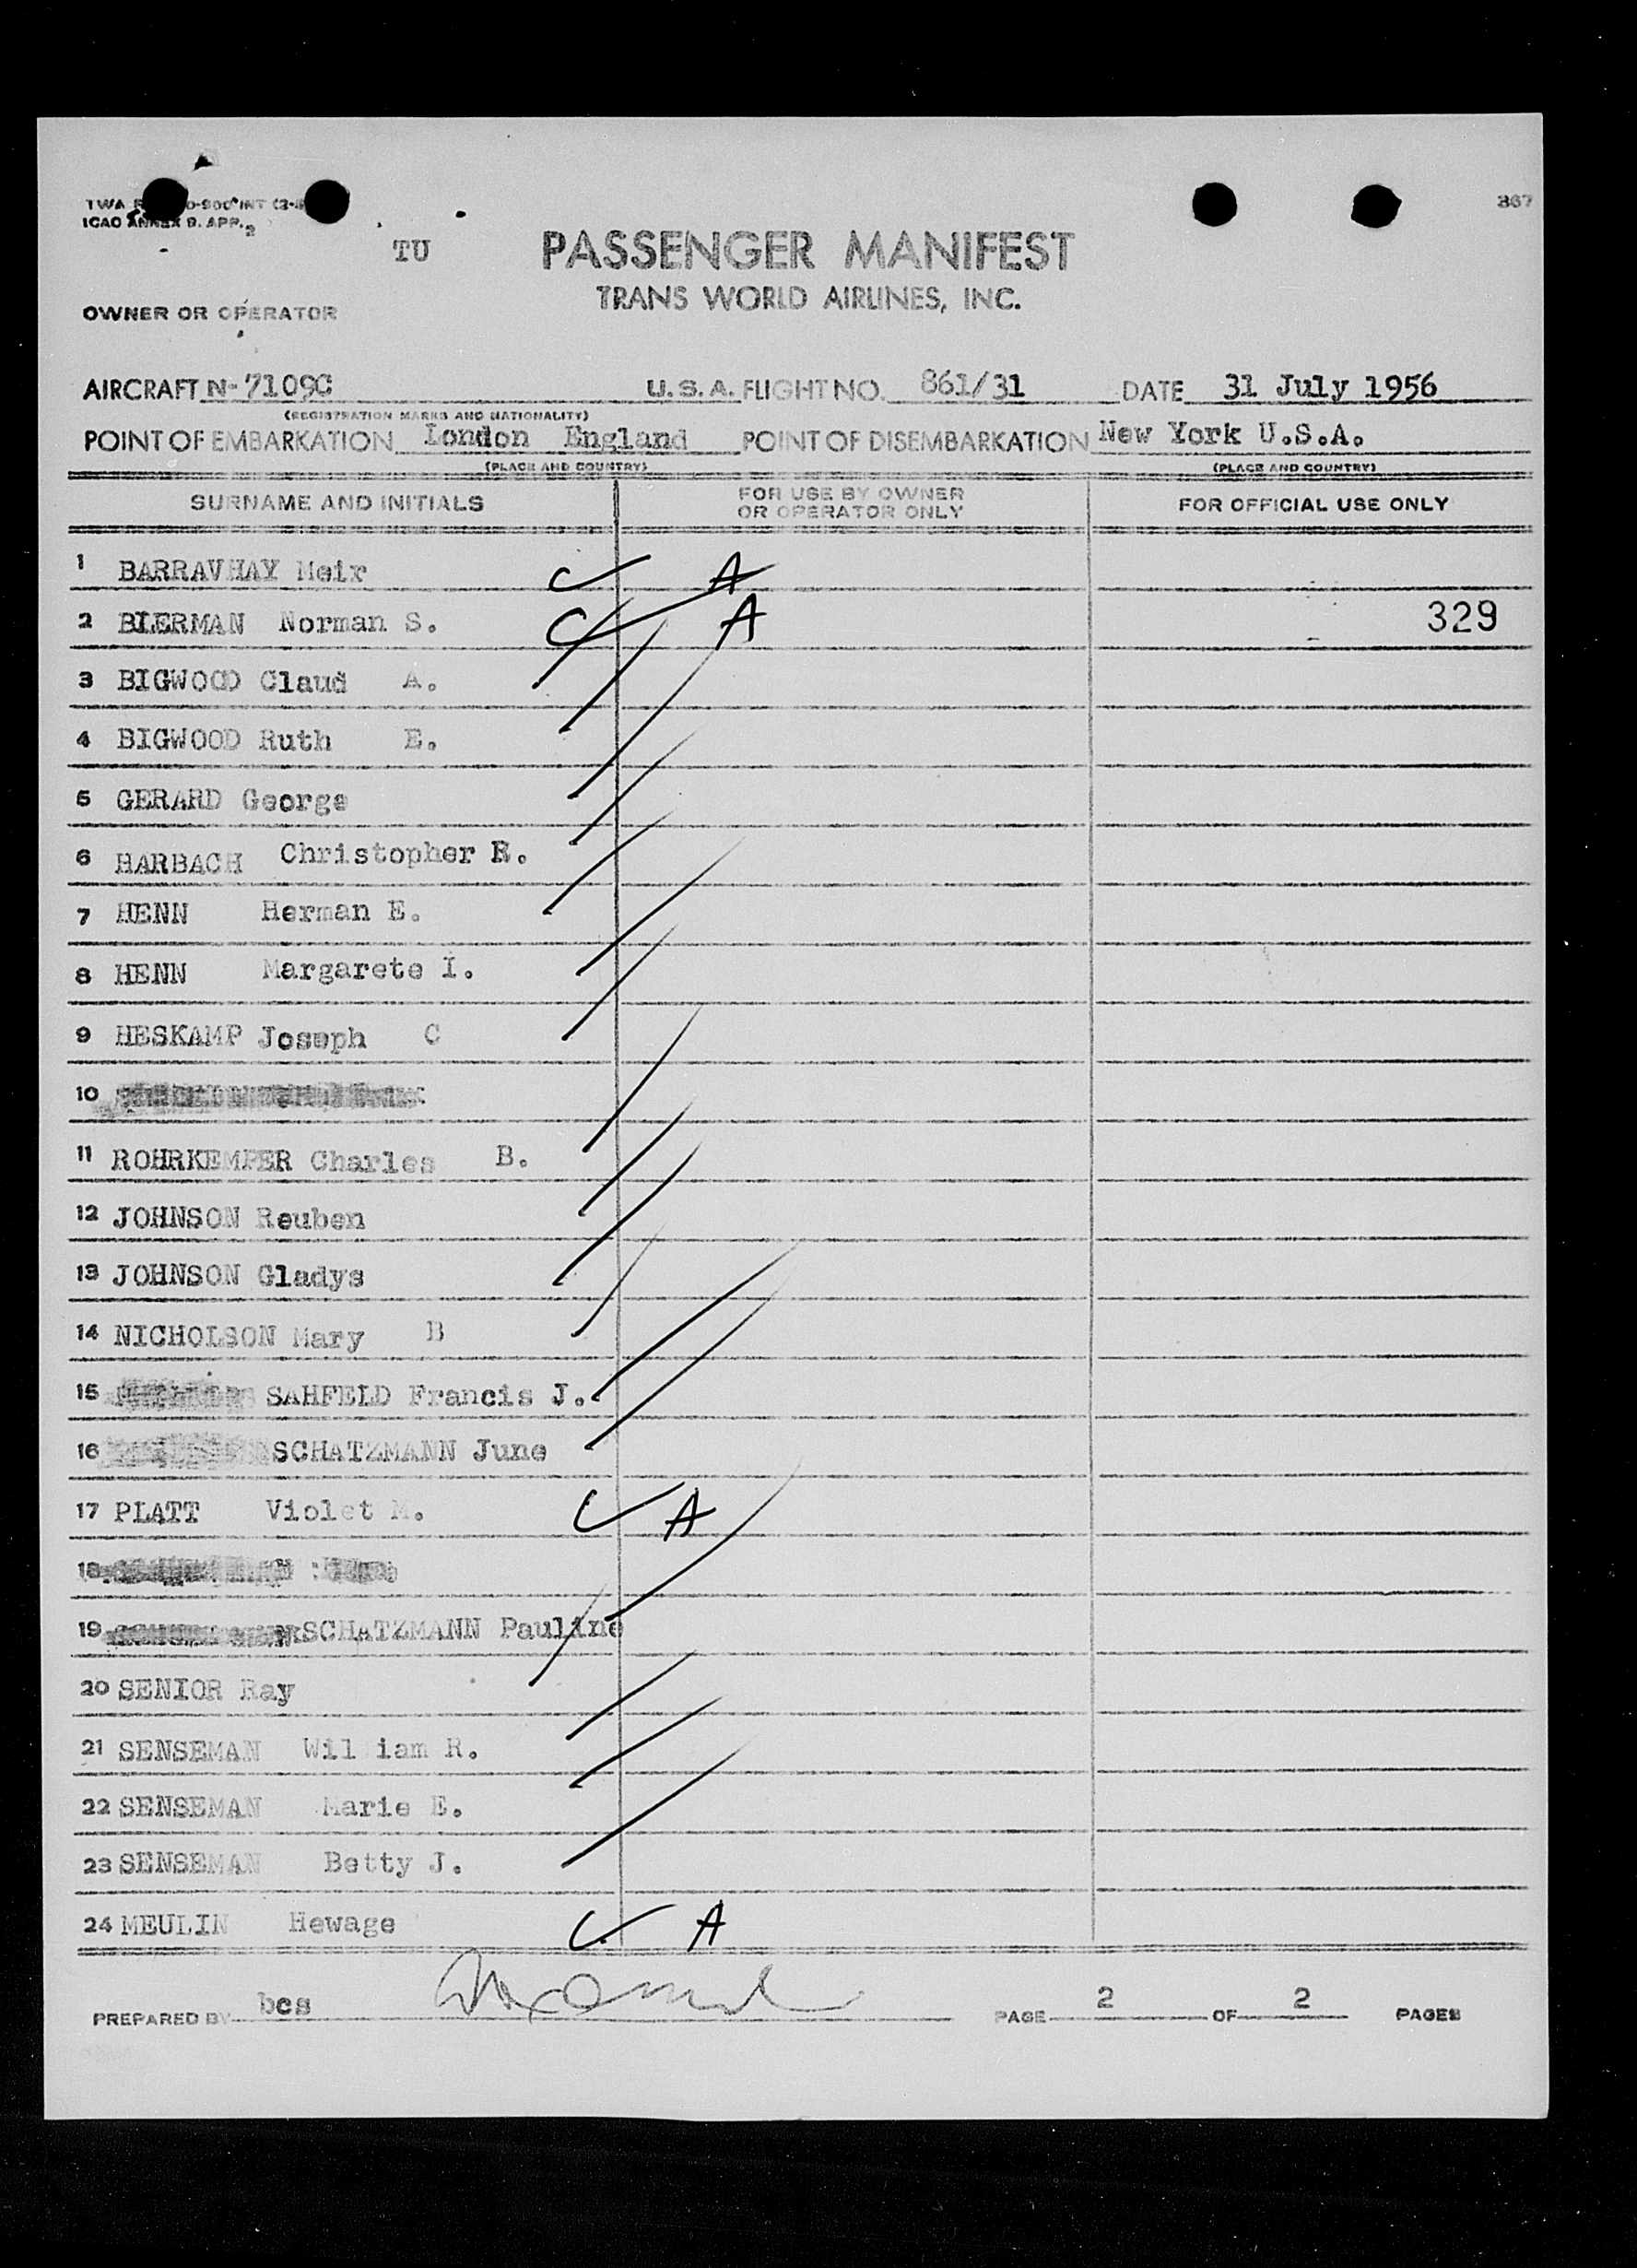 367
TWA
ICAO ANNEX 9. APP. 2
TU
PASSENGER MANIFEST
TRANS WORLD AIRLINES, INC.
OWNER OR OPERATOR
AIRCRAFT N-7109C U.S.A. FLIGHT NO. 861/31 DATE 31 July 1956
(REGISTRATION MARKS AND NATIONALITY)
POINT OF EMBARKATION London England POINT OF DISEMBARKATION New York U.S.A.
(PLACE AND COUNTRY) (PLACE AND COUNTRY)
SURNAME AND INITIALS FOR USE BY OWNER OR OPERATOR ONLY FOR OFFICIAL USE ONLY
1 BARRAVHAY Meir A
2 BIERMAN Norman S. A 329
3 BIGWOOD Claud A.
4 BIGWOOD Ruth E.
5 GERARD George
6 HARBACH Christopher R.
7 HENN Herman E.
8 HENN Margarete I.
9 HESKAMP Joseph C
10
11 ROHRKEMPER Charles B.
12 JOHNSON Reuben
13 JOHNSON Gladys
14 NICHOLSON Mary B
15 SAHFELD Francis J.
16 SCHATZMANN June
17 PLATT Violet M. A
18
19 SCHATZMANN Pauline
20 SENIOR Ray
21 SENSEMAN Wil iam R.
22 SENSEMAN Marie E.
23 SENSEMAN Betty J.
24 MEULIN Hewage A
PREPARED BY bcs PAGE 2 OF 2 PAGES